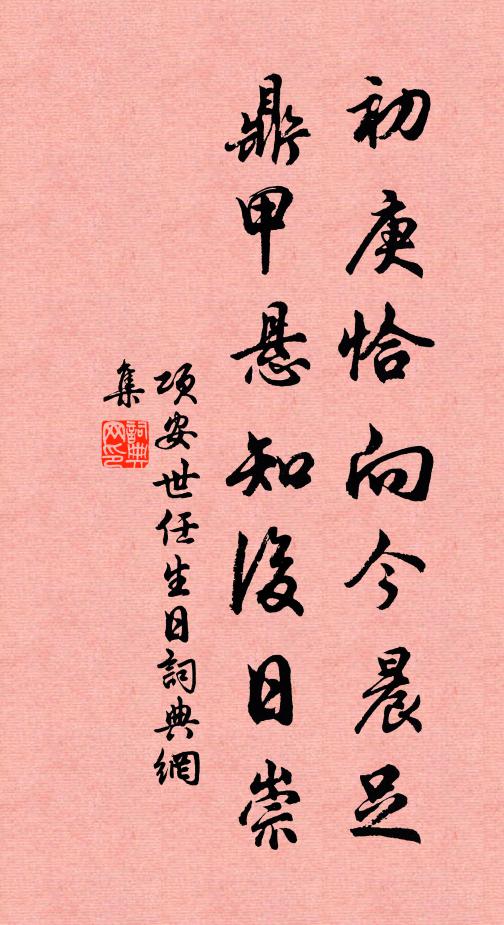 初庚恰向今晨足
鼎甲悬知後日崇
项安世任生日詞典網
集
詞典
网印